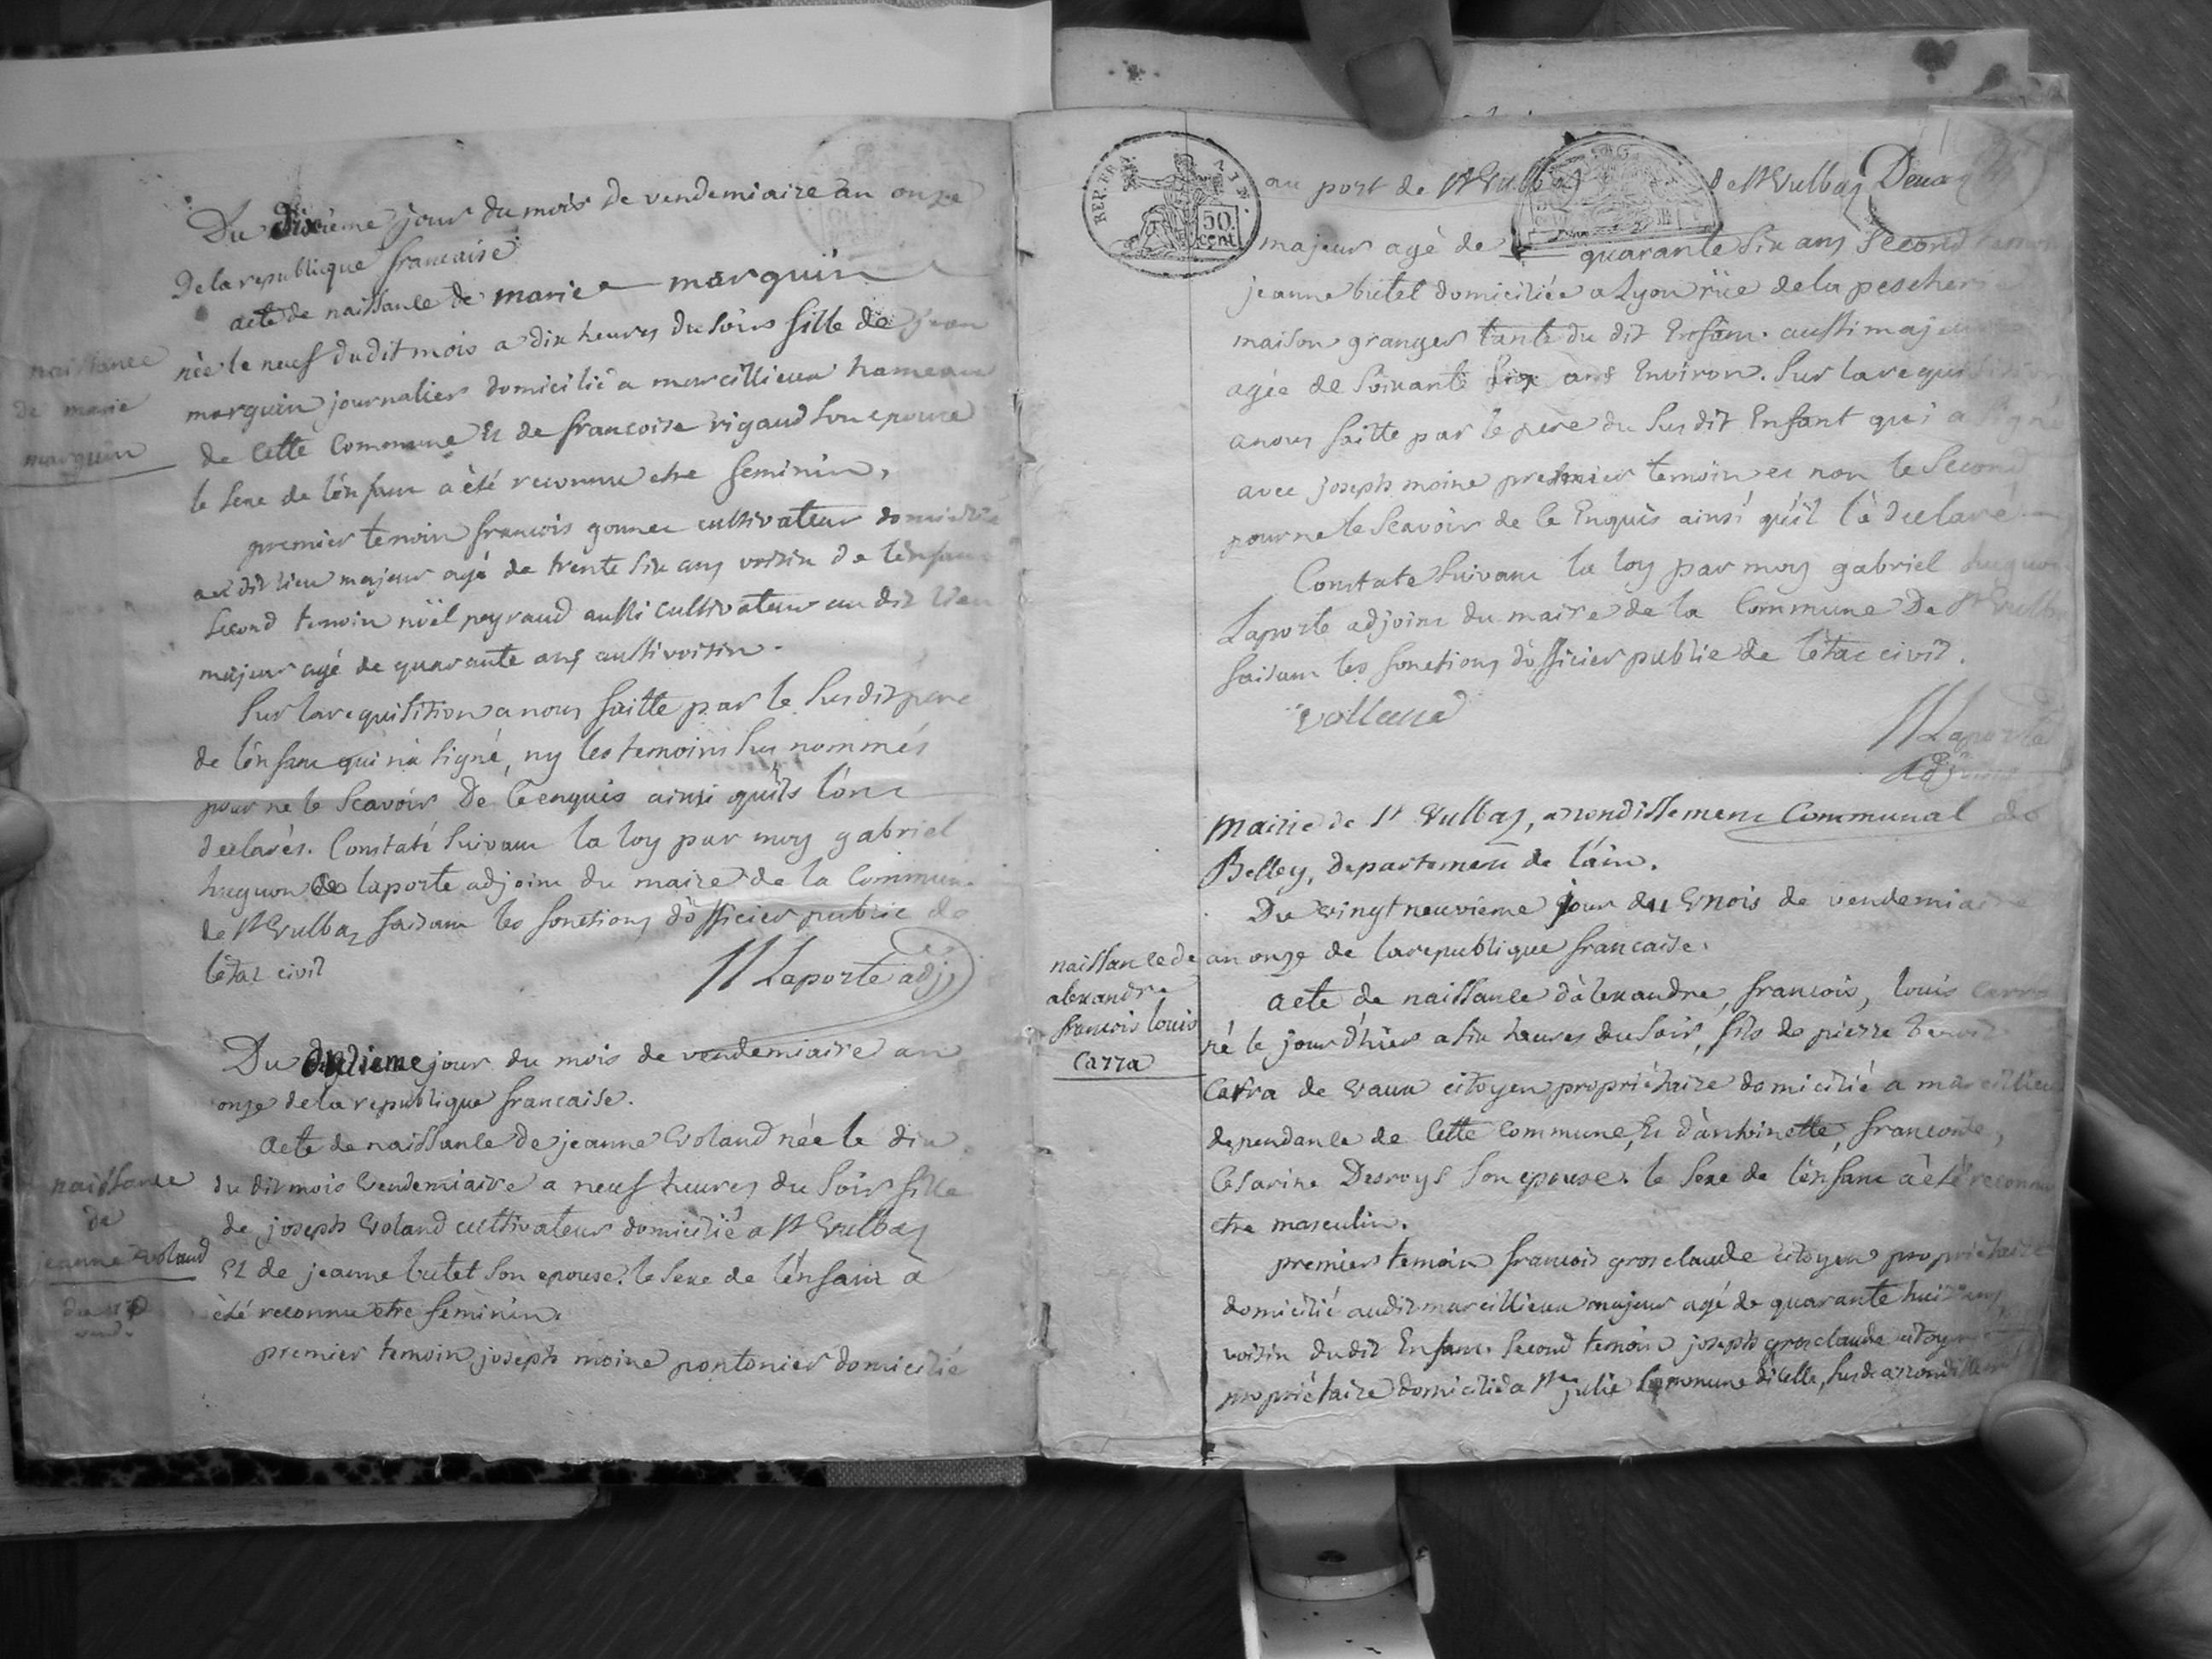 Du dixième jour du mois de vendemiaire an onze
De la republique francaise
acte de naissance de marie marguin
née le neuf du dit mois a dix heures du soirs fille de jean
marguin journalier domicilié a marcillieux hameau
de cette commune Et de francoise rigaud son epouse
le sexe de l'énfant a été reconnu etre feminin,
premier temoin francois gonnet cultivateur domicilié
au dit lieu majeur agé de trente six ans voisin de l'enfant
second temoin nöel peyraud aussi cultivateur au dit lieu
majeur agé de quarante ans aussi voisin.
Sur la requisition a nous faitte par le susdit pere
de l'énfant qui n'a signé, ny les temoins sus nommés
pour ne le scavoir De ce enquis ainsi qu'ils l'ont
declarés. Constaté suivant la loy par moy gabriel
huguon de laporte adjoint du maire de la Commune
de St Vulbaz faisant les fonctions d'officier public de
l'état civil
Laporte adj
naissance
de marie
marguin
Du jour du mois de vendemiaire an
onze de la republique francaise.
Acte de naissance de jeanne Voland née le dix
du dit mois Vendemiaire a neuf heures du soir fille
de joseph Voland cultivateur domicilié a St Vulbaz
Et de jeanne butet son epouse. le sexe de l'énfant a
été reconnu etre feminin.
premier temoin joseph moine pontonier domicilié
naissance
de
jeanne voland
REP. FRA
50
cent
au port de St Vulbaz de St Vulbaz
majeur agé de quarante six ans Second temoin
jeanne butet domiciliée a Lyon rüe de la pescherie
maison granger tante du dit Enfant. aussi majeure
agée de soixante ans Environ. Sur la requisition
a nous faitte par le pere du susdit Enfant qui a signé
avec joseph moine premier temoin et non le Second
pour ne le scavoir de ce Enquis ainsi qu'il l'a declaré
Constate suivant la loy par moy gabriel huguon
Laporte adjoint du maire de la Commune De St Vulbaz
faisant les fonctions d'officier public de l'état civil.
volland
Laporte
Adjoint
Mairie de St Vulbaz, arondissement Communal de
Belley, departement de l'ain.
Du vingt neuvième jour du mois de vendemiaire
an onze de la republique francaise.
acte de naissance d'alexandre, francois, louis carra
né le jour d'hier a six heures du soir, fils de pierre benoit
Carra de vaux citoyen propriétaire domicilié a marcillieux
dependance de cette commune, Et d'antoinette, franconde,
Cesarine Desroys son epouse. le sexe de l'énfant a été reconnu
etre masculin.
premier temoin francois grosclaude citoyen propriétaire
domicilié audit marcillieux majeur agé de quarante huit ans
voisin dudit Enfant. Second temoin joseph grosclaude citoyen
propriétaire domicilié a Ste julie Commune d'icelle, susdit arrondissement
naissance de
alexandre
francois louis
Carra